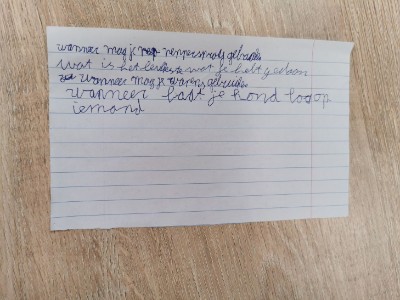 wanneer mag je pepperspray gebruiken
wat is het leukste wat je hebt gedaan
wanneer mag je wapens gebruiken
wanneer laat je hond los op
iemand